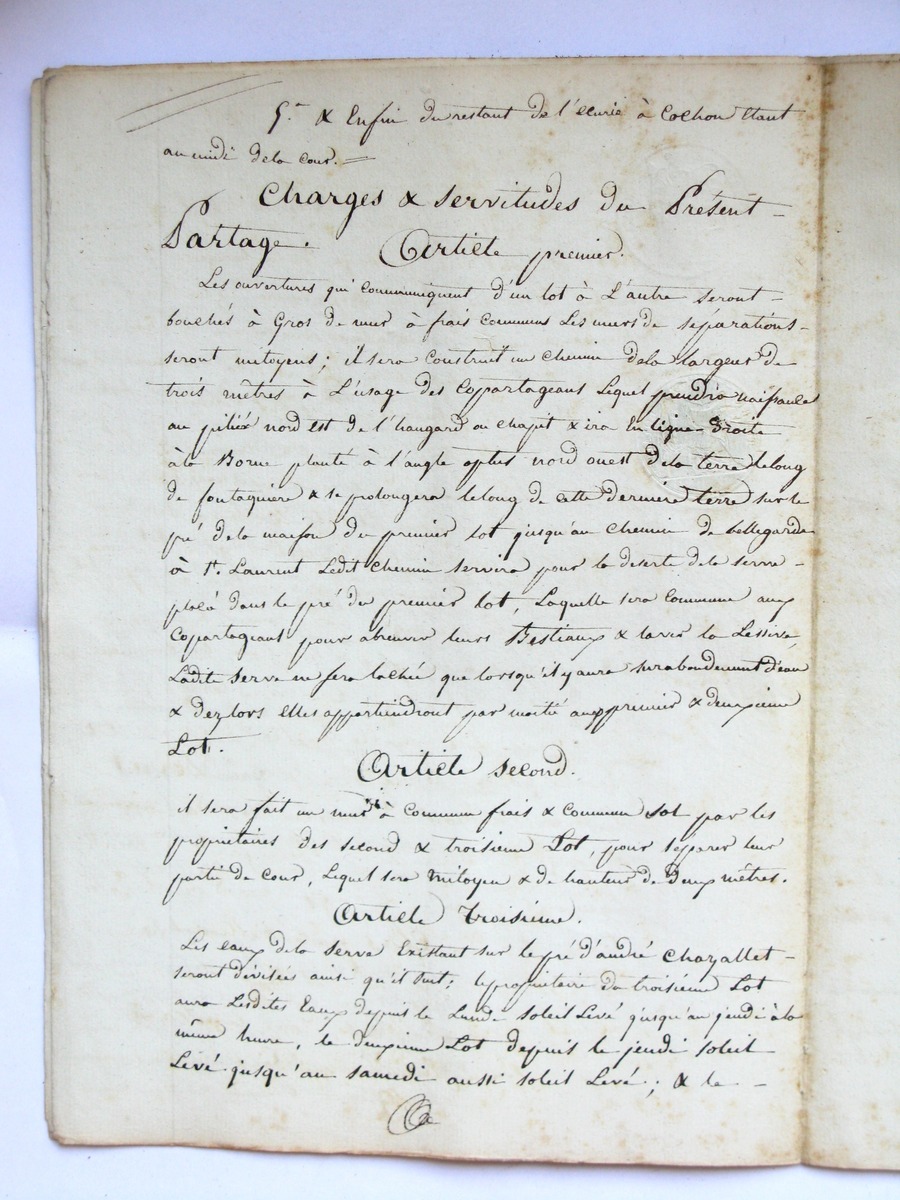 5.° & Enfin du restant de l'écurie à Cochon étant
au midi de la Cour. =
Charges & servitudes du Présent
Partage. Article premier.
Les ouvertures qui Communiquent d'un lot à L'autre seront
bouchés à Gros de mur à frais Communs Les murs de séparations
seront mitoyens ; il sera Construit un Chemin de la largeur de
trois mètres à L'usage des Copartageans Lequel prendra naissance
au pilier nord est de l'hangard ou Chapit & ira En ligne Droite
à la Borne planté à l'angle oplus nord ouest de la terre le long
de fontaquière & se prolongera le long de cette dernière terre sur le
pré de la maison du premier lot jusqu'au Chemin de bellegarde
à St. Laurent Ledit Chemin servira pour la deserte de la serve
placé dans le pré du premier lot, Laquelle sera Commune aux
Copartageant pour abreuver leurs Bestiaux & laver la Lessive,
Ladite serve ne sera lachée que lorsqu'il y aura surabondemment d'eau
& dez lors elles appartiendront par moitié aux premier & deuxieme
Lot.
Article second.
il sera fait un mur à Commun frais & Commun sol par les
proprietaires des second & troisieme Lot, pour séparer leur
partie de Cour, Lequel sera mitoyen & de hauteur de Deux mètres.
Article troisième.
Les eaux de la serve Existant sur le pré d'andré Chazallet
seront divisées ainsi qu'il suit ; le propriétaire du troisieme Lot
aura Lesdites Eaux depuis le Lundi soleil Levé jusqu'au jeudi à la
même heure, le deuxieme Lot depuis le jeudi soleil
Levé jusqu'au samedi aussi soleil Levé ; & le